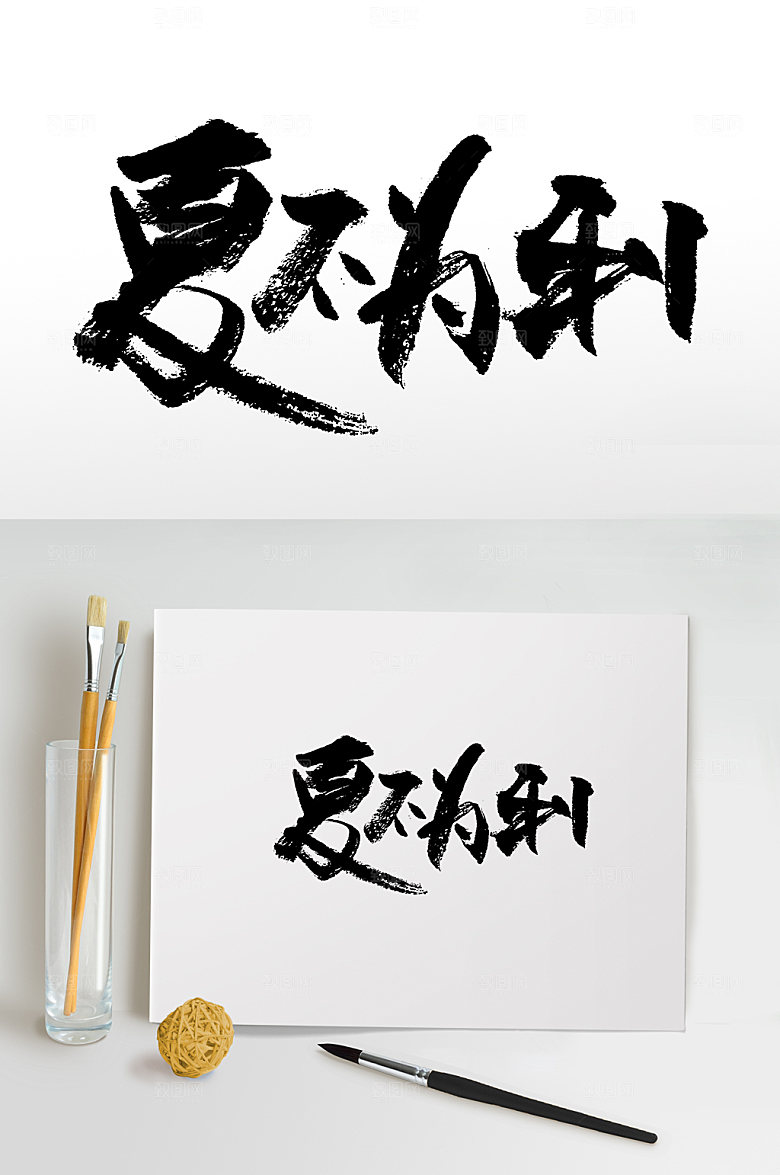 夏不为利
夏不为利